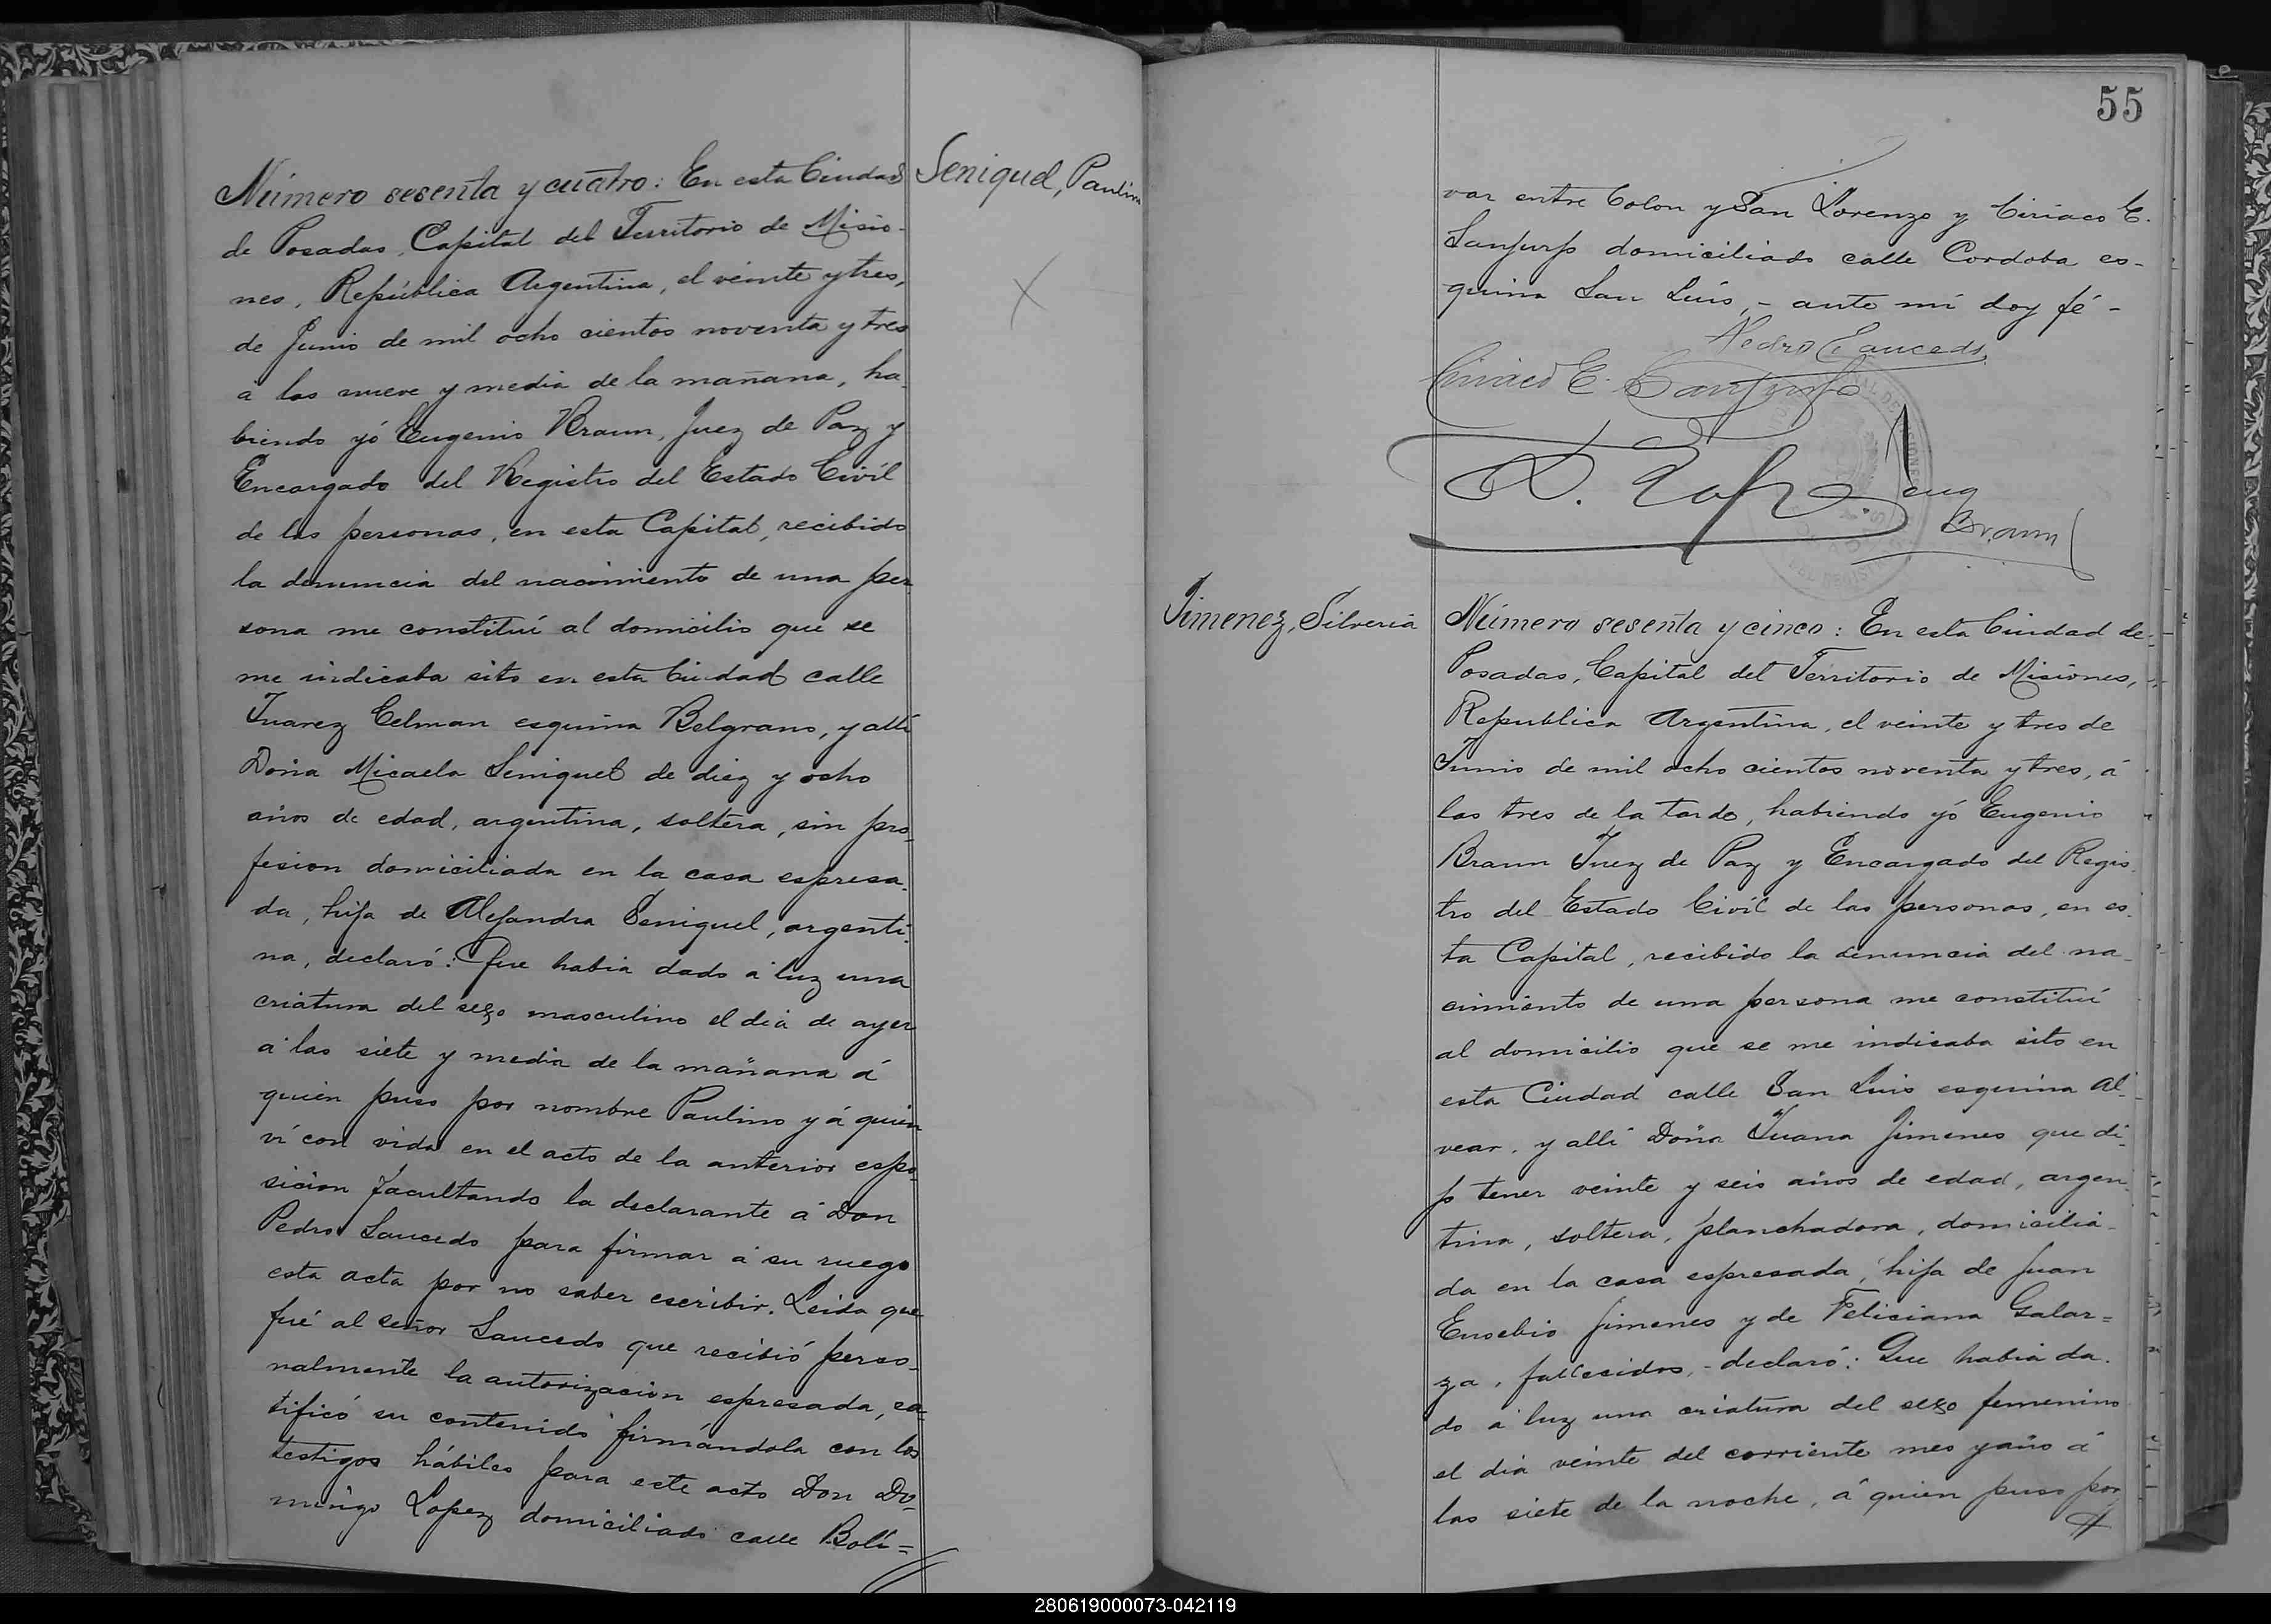 Número sesenta y cuatro: En esta Ciudad
de Posadas, Capital del Territorio de Misio-
nes, República Argentina, el veinte y tres,
de Junio de mil ocho cientos noventa y tres
á las nueve y media de la mañana, ha-
biendo yó Eugenio Braun, Juez de Paz y
Encargado del Registro del Estado Civíl
de las personas, en esta Capital, recibido
la denuncia del nacimiento de una per-
sona me constituí al domicilio que se
me indicaba sito en esta Ciudad calle
Juarez Celman esquina Belgrano, y allí
Doña Micaela Seniquel de diez y ocho
años de edad, argentina, soltera, sin pro-
fesion domiciliada en la casa espresa-
da, hija de Alejandra Seniquel, argenti-
na, declaró: Que habia dado á luz una
criatura del sexo masculino el dia de ayer
á las siete y media de la mañana á
quien puso por nombre Paulino y á quien
ví con vida en el acto de la anterior espo-
sicion facultando la declarante á Don
Pedro Saucedo para firmar á su ruego
esta acta por no saber escribir. Leida que
fué al señor Saucedo que recibió perso-
nalmente la autorizacion espresada, ra-
tificó su contenido firmándola con los
testigos hábiles para este acto Don Do-
mingo Lopez domiciliado calle Bolí=
Seniquel, Paulino
55
var entre Colon y San Lorenzo y Ciriaco E.
Sanjurjo domiciliado calle Cordoba es-
quina San Luis, - ante mi doy fé -
Pedro Saucedo
Ciriaco E. Sanjurjo
D. Lopez
Eug Braun
Jimenez, Silveria
Número sesenta y cinco: En esta Ciudad de
Posadas, Capital del Territorio de Misiones,
Republica Argentina, el veinte y tres de
Junio de mil ocho cientos noventa y tres, á
las tres de la tarde, habiendo yó Eugenio
Braun Juez de Paz y Encargado del Regis-
tro del Estado Civíl de las personas, en es-
ta Capital, recibido la denuncia del na-
cimiento de una persona me constituí
al domicilio que se me indicaba sito en
esta Ciudad calle San Luis esquina Al-
vear, y allí Doña Juana Jimenes que di-
jo tener veinte y seis años de edad, argen-
tina, soltera, planchadora, domicilia-
da en la casa espresada, hija de Juan
Eusebio Jimenes y de Feliciana Galar=
za, fallecidos, - declaró: Que habia da-
do á luz una criatura del sexo femenino
el dia veinte del corriente mes y año á
las siete de la noche, á quien puso por
280619000073-042119